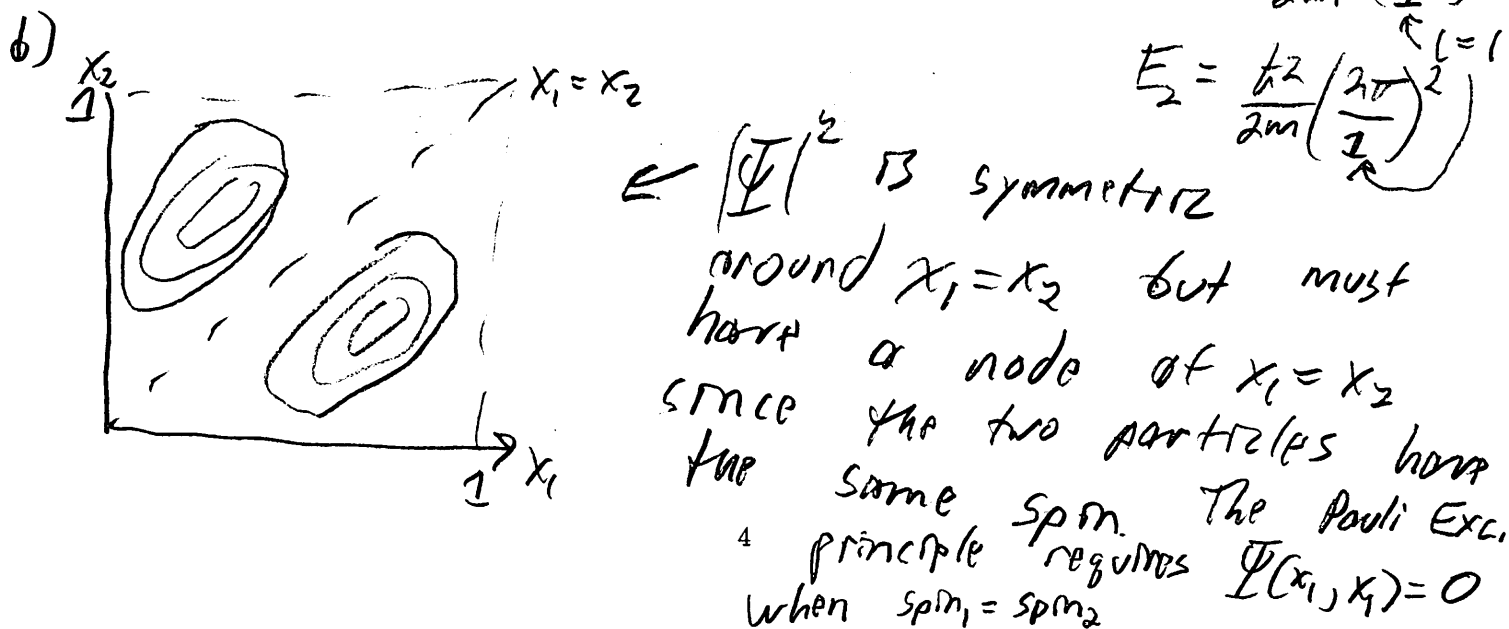 b)
x₂
1
x₁ = x₂
1
x₁
l = 1
E₂ = ħ²/2m (2π/1)²
← |Ψ|² is symmetric
around x₁ = x₂ but must
have a node at x₁ = x₂
since the two particles have
the same spin. The Pauli Exc.
principle requires Ψ(x₁, x₁) = 0
when spin₁ = spin₂
4